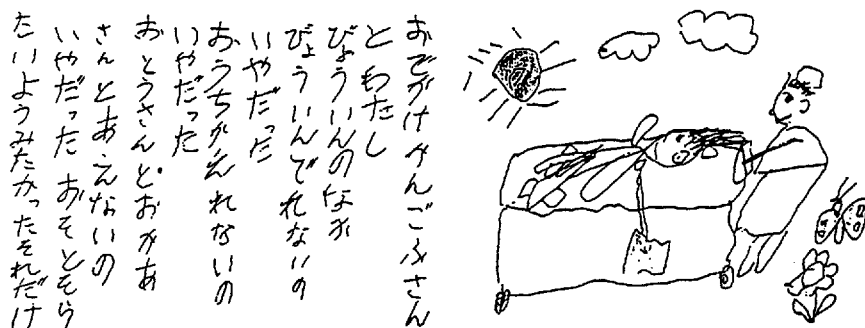 おでがけかんごふさん
とわたし
びょういんのなか
びょういんでれないの
いやだった
おうちかえれないの
いやだった
おとうさんとおかあ
さんとあえないの
いやだった おそとそら
たいようみたかったそれだけ